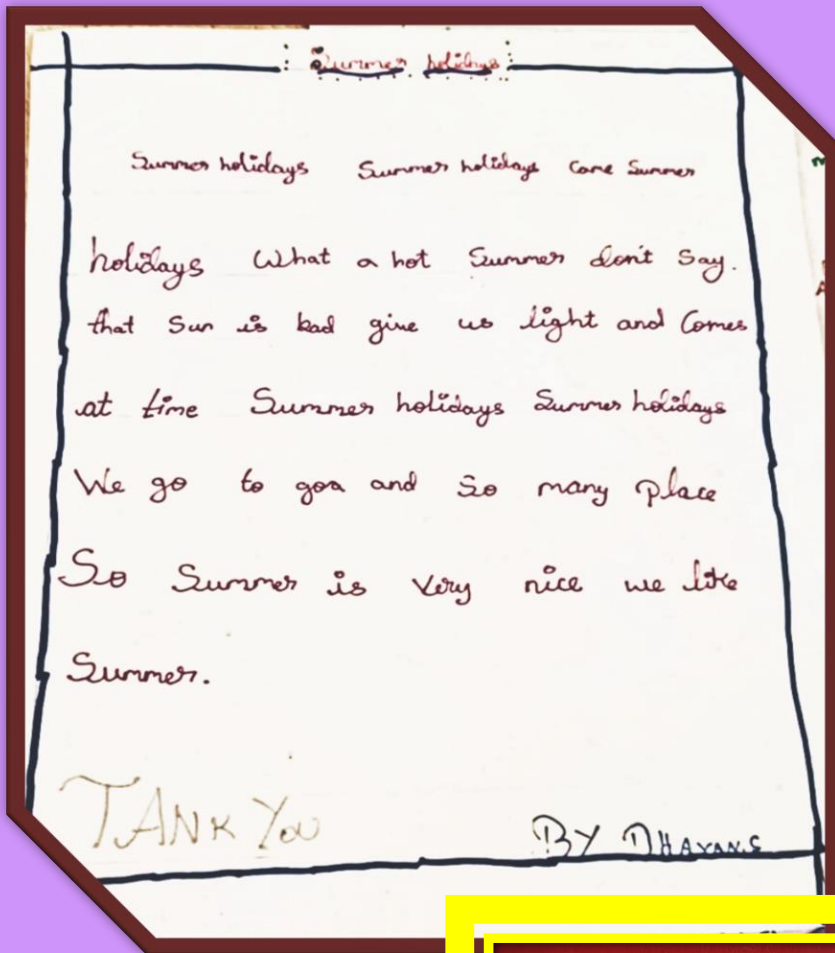 Summer holidays
Summer holidays Summer holidays Come Summer
holidays What a hot Summer don't Say.
that Sun is bad give us light and Comes
at time Summer holidays Summer holidays
We go to goa and So many place
So Summer is Very nice we like
Summer.
TANK YOU
BY DHAYAN.S